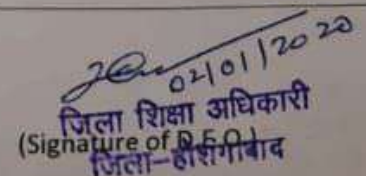 02/01/2020
जिला शिक्षा अधिकारी
(Signature of D.E.O.)
जिला-होशंगाबाद